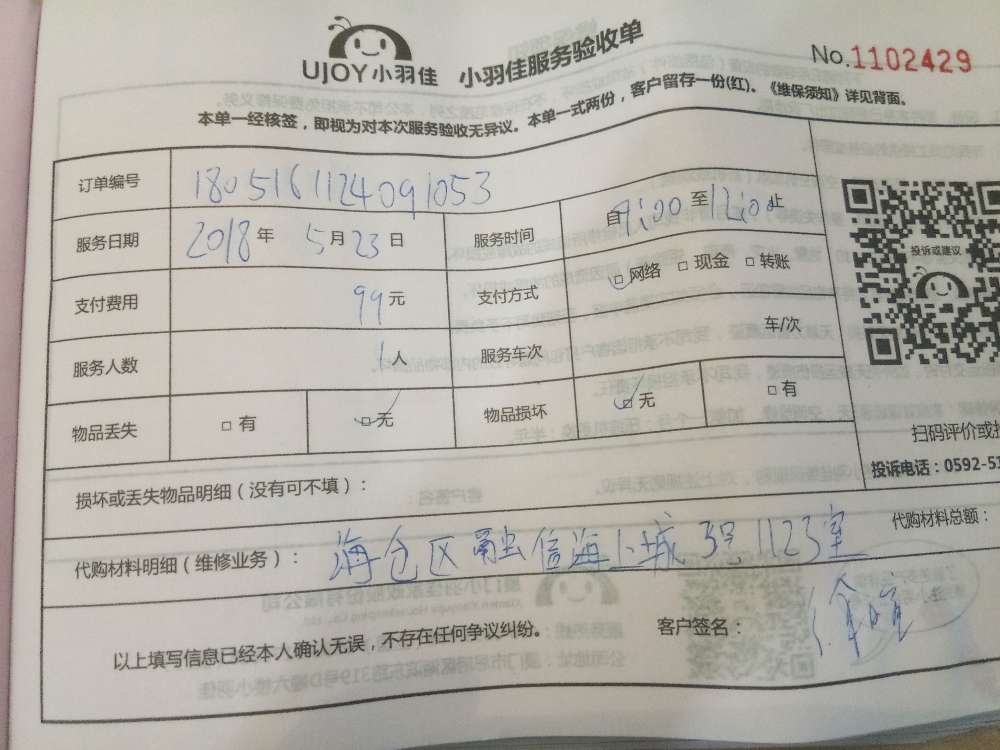 UJOY小羽佳 小羽佳服务验收单
No.1102429
本单一经核签，即视为对本次服务验收无异议。本单一式两份，客户留存一份(红)。《维保须知》详见背面。
订单编号 180516112409 1053
服务日期 2018年 5月23日 服务时间 自9:00至12:00止
支付费用 99元 支付方式 □网络 □现金 □转账
服务人数 1人 服务车次 车/次
物品丢失 □有 □无 物品损坏 □无 □有
投诉或建议
扫码评价或
投诉电话：0592-51
损坏或丢失物品明细（没有可不填）：
代购材料明细（维修业务）： 海仓区融信海上城3号1123室
代购材料总额：
以上填写信息已经本人确认无误，不存在任何争议纠纷。
客户签名：